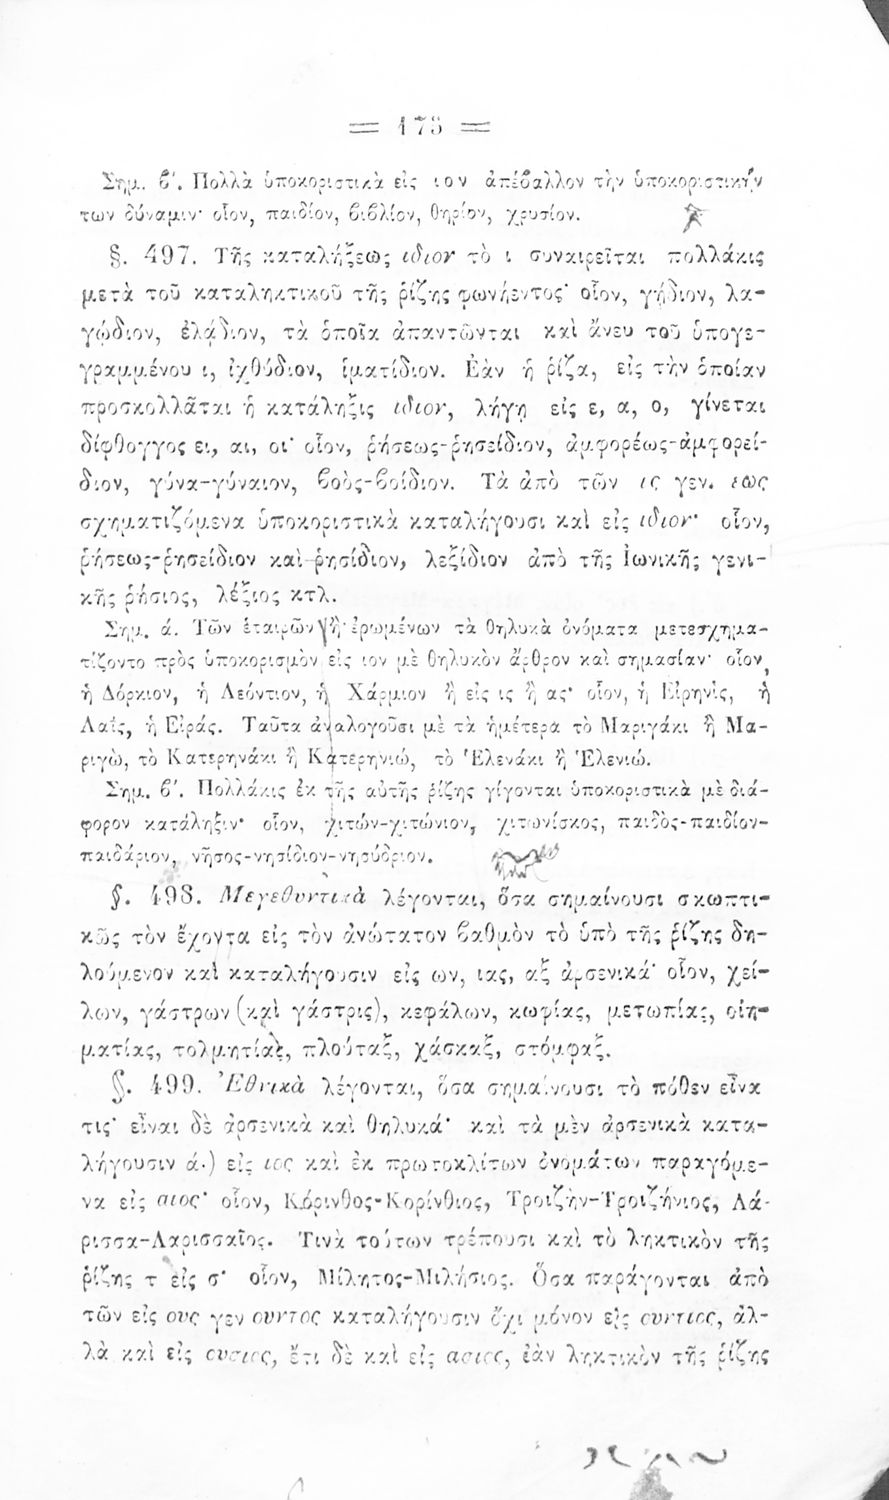 = 175 =
Σημ. β'. Πολλὰ ὑποκοριστικὰ εἰς ιον ἀπέβαλλον τὴν ὑποκοριστικήν
των δύναμιν· οἷον, παιδίον, βιβλίον, θηρίον, χρυσίον.
§. 497. Τῆς καταλήξεως ιδιον τὸ ι συναιρεῖται πολλάκις
μετὰ τοῦ καταληκτικοῦ τῆς ῥίζης φωνήεντος· οἷον, γῄδιον, λα-
γῴδιον, ἐλᾴδιον, τὰ ὁποῖα ἀπαντῶνται καὶ ἄνευ τοῦ ὑπογε-
γραμμένου ι, ἰχθύδιον, ἱματίδιον. Ἐὰν ἡ ῥίζα, εἰς τὴν ὁποίαν
προσκολλᾶται ἡ κατάληξις ιδιον, λήγῃ εἰς ε, α, ο, γίνεται
δίφθογγος ει, αι, οι· οἷον, ῥήσεως-ῥησείδιον, ἀμφορέως-ἀμφορεί-
διον, γύνα-γύναιον, βοὸς-βοίδιον. Τὰ ἀπὸ τῶν ις γεν. εως
σχηματιζόμενα ὑποκοριστικὰ καταλήγουσι καὶ εἰς ιδιον· οἷον,
ῥήσεως-ῥησείδιον καὶ ῥησίδιον, λεξίδιον ἀπὸ τῆς Ἰωνικῆς γενι-
κῆς ῥήσιος, λέξιος κτλ.
Σημ. ά. Τῶν ἑταιρῶν ἢ ἐρωμένων τὰ θηλυκὰ ὀνόματα μετεσχημα-
τίζοντο πρὸς ὑποκορισμὸν εἰς ιον μὲ θηλυκὸν ἄρθρον καὶ σημασίαν· οἷον,
ἡ Δόρκιον, ἡ Λεόντιον, ἡ Χάρμιον ἢ εἰς ις ἢ ας· οἷον, ἡ Εἰρηνὶς, ἡ
Λαΐς, ἡ Εἰράς. Ταῦτα ἀναλογοῦσι μὲ τὰ ἡμέτερα τὸ Μαριγάκι ἢ Μα-
ριγὼ, τὸ Κατερηνάκι ἢ Κατερηνιώ, τὸ Ἑλενάκι ἢ Ἑλενιώ.
Σημ. β'. Πολλάκις ἐκ τῆς αὐτῆς ῥίζης γίγονται ὑποκοριστικὰ μὲ διά-
φορον κατάληξιν· οἷον, χιτών-χιτώνιον, χιτωνίσκος, παιδὸς-παιδίον-
παιδάριον, νῆσος-νησίδιον-νησύδριον.
§. 498. Μεγεθυντικὰ λέγονται, ὅσα σημαίνουσι σκωπτι-
κῶς τὸν ἔχοντα εἰς τὸν ἀνώτατον βαθμὸν τὸ ὑπὸ τῆς ῥίζης δη-
λούμενον καὶ καταλήγουσιν εἰς ων, ιας, αξ ἀρσενικά· οἷον, χεί-
λων, γάστρων (καὶ γάστρις), κεφάλων, κωφίας, μετωπίας, οἰη-
ματίας, τολμητίας, πλούταξ, χάσκαξ, στόμφαξ.
§. 499. Ἐθνικὰ λέγονται, ὅσα σημαίνουσι τὸ πόθεν εἶνα
τις· εἶναι δὲ ἀρσενικὰ καὶ θηλυκά· καὶ τὰ μὲν ἀρσενικὰ κατα-
λήγουσιν ά.) εἰς ιος καὶ ἐκ πρωτοκλίτων ὀνομάτων παραγόμε-
να εἰς αιος· οἷον, Κόρινθος-Κορίνθιος, Τροιζὴν-Τροιζήνιος, Λά-
ρισσα-Λαρισσαῖος. Τινὰ τούτων τρέπουσι καὶ τὸ ληκτικὸν τῆς
ῥίζης τ εἰς σ· οἷον, Μίλητος-Μιλήσιος. Ὅσα παράγονται ἀπὸ
τῶν εἰς ους γεν ουντος καταλήγουσιν ὄχι μόνον εἰς ουντιος, ἀλ-
λὰ καὶ εἰς ουσιος, ἔτι δὲ καὶ εἰς ασιος, ἐὰν ληκτικὸν τῆς ῥίζης